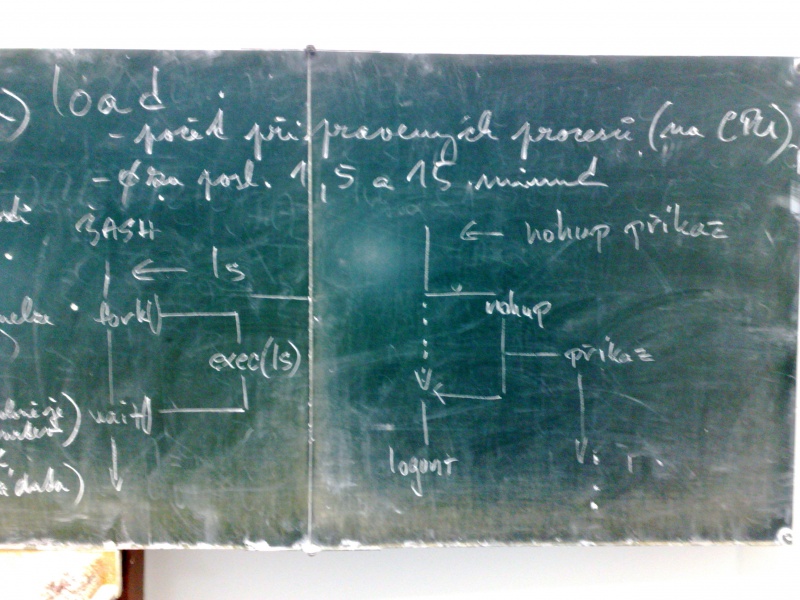 load
- počet připravených procesů (na CPU)
- φ za posl. 1, 5 a 15 minut
BASH
← ls
fork()
exec(ls)
wait()
← nohup příkaz
nohup
příkaz
logout